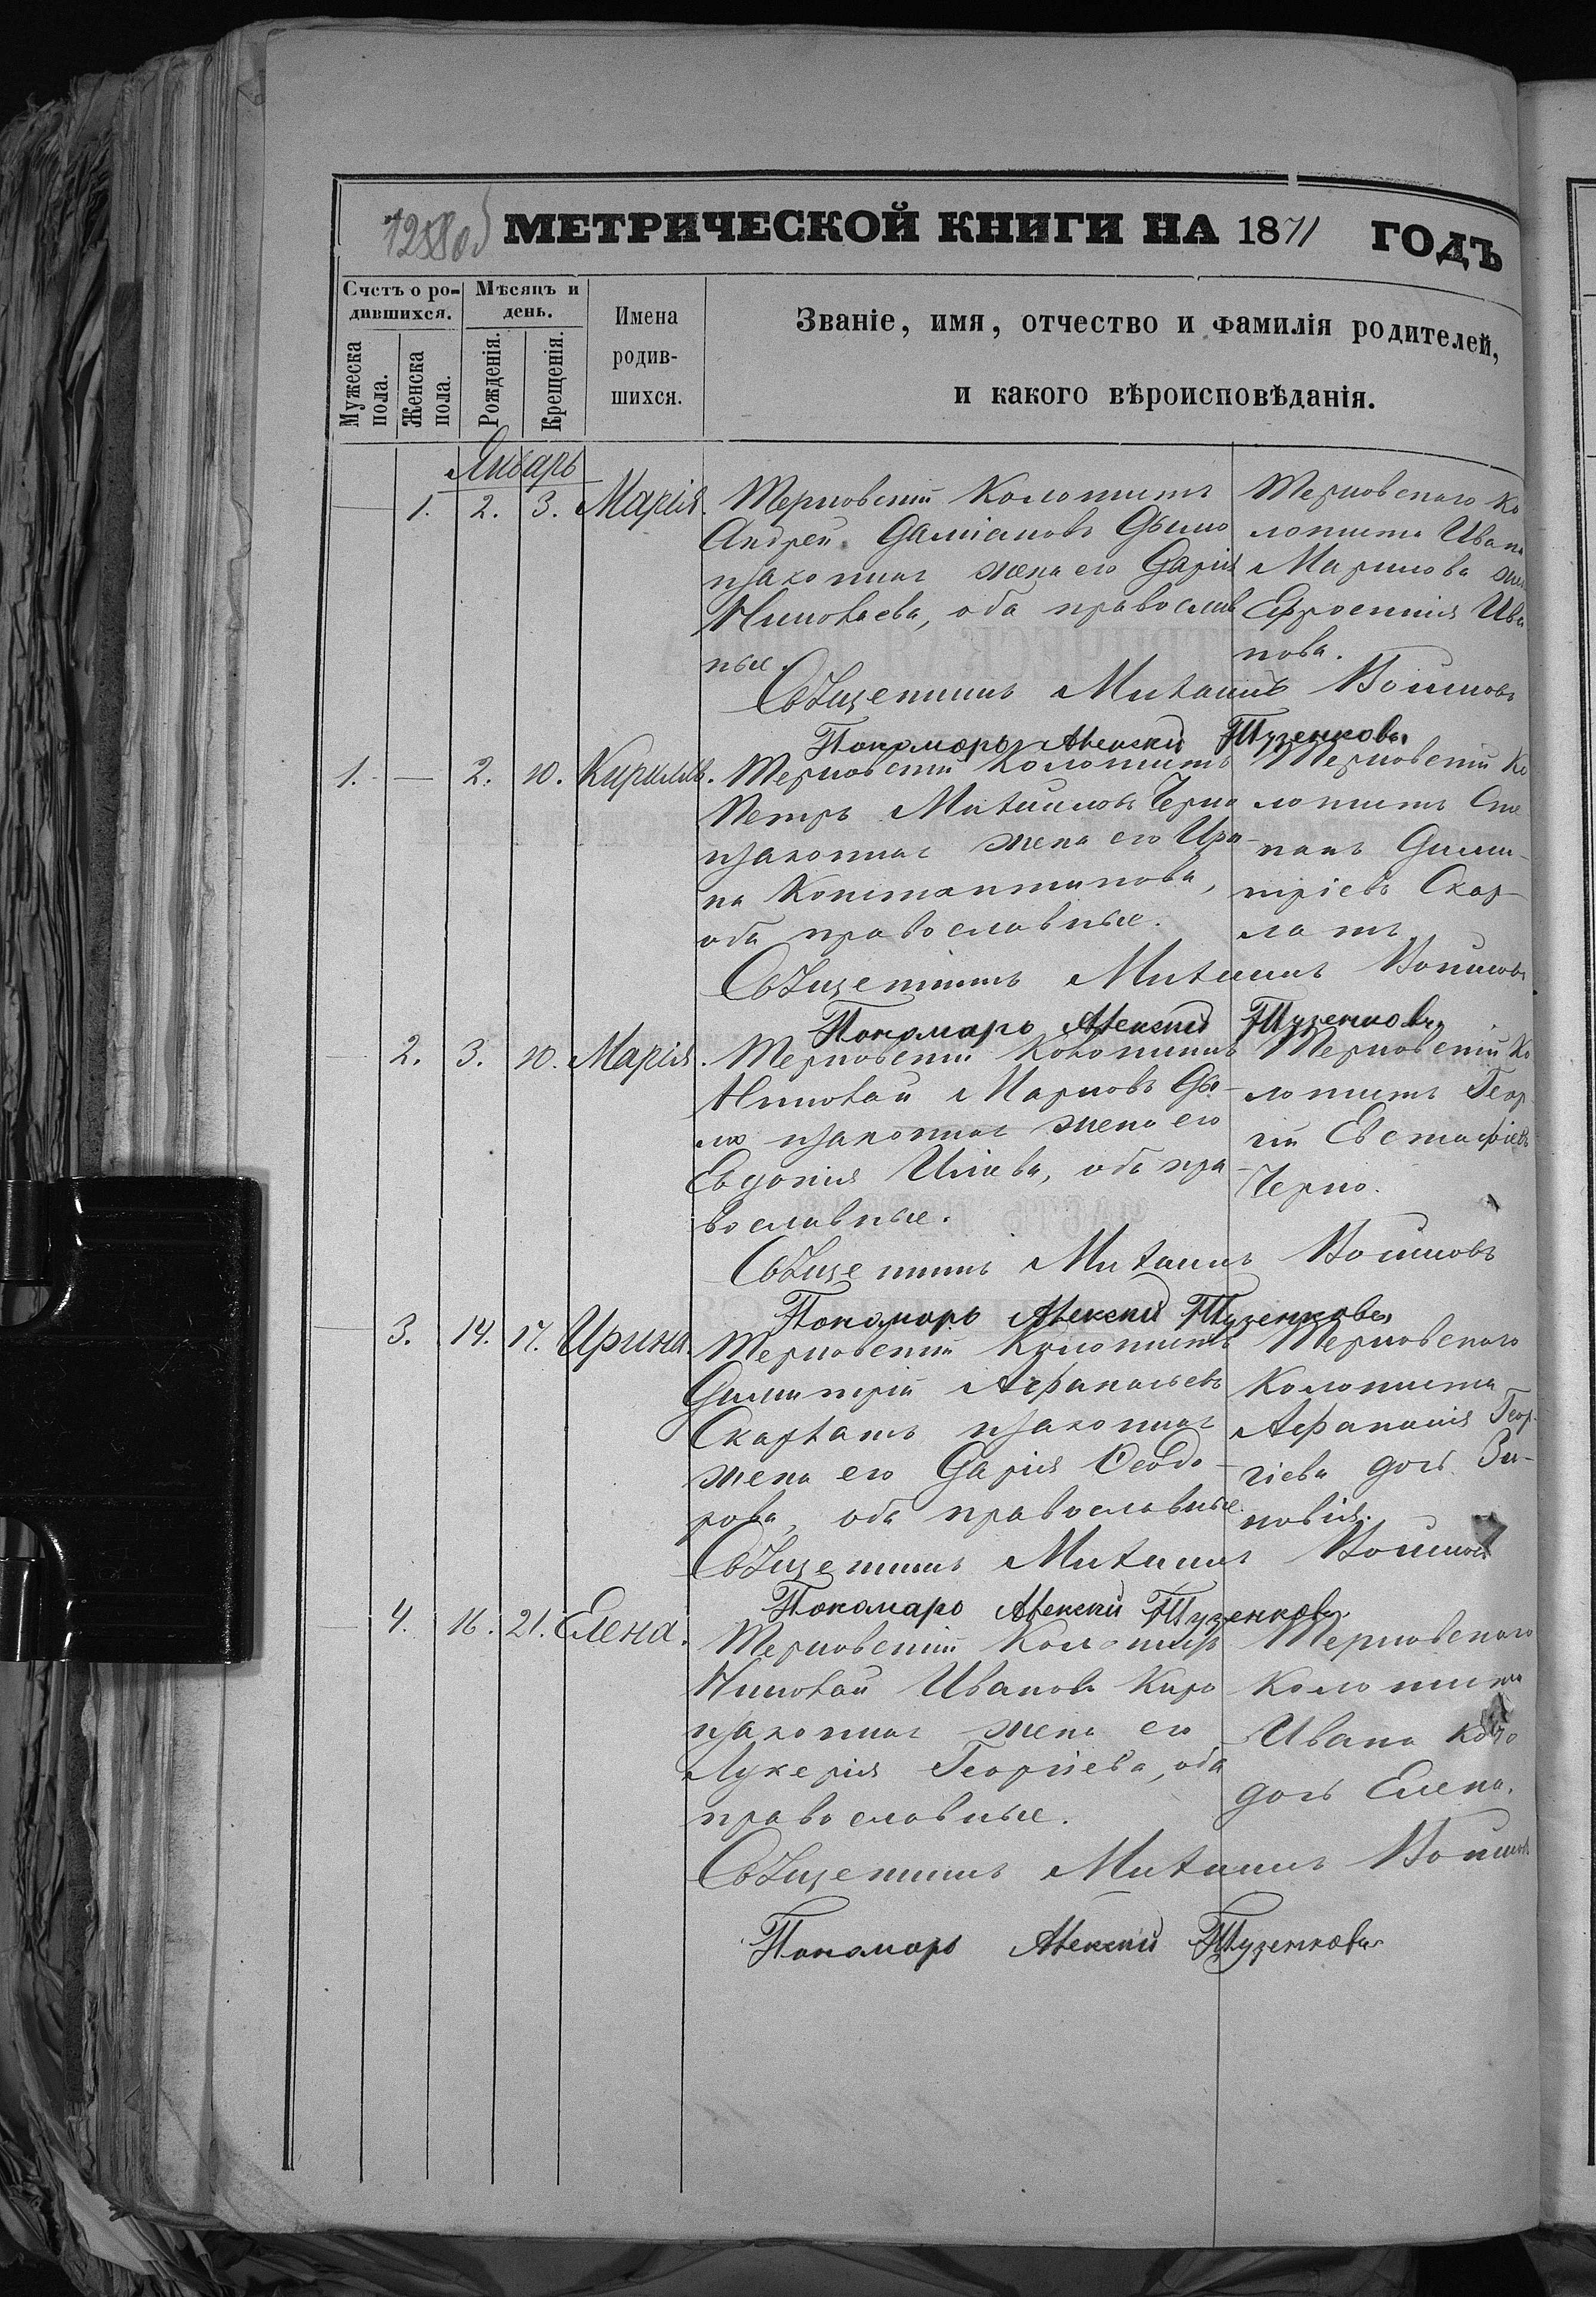 МЕТРИЧЕСКОЙ КНИГИ НА 1871 ГОДЪ
Счетъ о родившихся.
Мужеска пола.
Женска пола.
Мѣсяцъ и день.
Рожденія.
Крещенія.
Имена родив-
шихся.
Званіе, имя, отчество и фамилія родителей,
и какого вѣроисповѣданія.
Январь
1. 2. 3. Марія.
Терновскій колонистъ
Андрей Даміановъ
и законная жена его Дарія
Николаева, оба православ
ные.
Терновскаго ко
лониста Ивана
Маринова
Ефросинія Ива
нова.
Священникъ Михаилъ Войновъ
Пономарь Алексій Тузенковъ
1. — 2. 10. Кириллъ.
Терновскій колонистъ
Петръ Михаиловъ Черно
и законная жена его Ири-
на Константинова,
оба православные.
Терновскій ко
лонистъ Сте
панъ Дими-
тріевъ Скар-
латъ
Священникъ Михаилъ Войновъ
Пономарь Алексій Тузенковъ
2. 3. 10. Марія.
Терновскій колонистъ
Николай Марковъ
и законная жена его
Евдокія Иліева, оба пра-
вославные.
Терновскій ко
лонистъ Геор
гій Евстафіевъ
Черно.
Священникъ Михаилъ Войновъ
Пономарь Алексій Тузенковъ
3. 14. 17. Ирина.
Терновскій колонистъ
Димитрій Афанасьевъ
Скарлатъ и законная
жена его Дарія Ѳеодо-
рова, оба православные.
Терновскаго
колониста
Афанасія Геор-
гіева дочь Зи-
новія.
Священникъ Михаилъ Войновъ
Пономарь Алексій Тузенковъ
4. 16. 21. Елена.
Терновскій колонистъ
Николай Ивановъ Киро
и законная жена его
Лукерія Георгіева, оба
православные.
Терновскаго
колониста
Ивана
дочь Елена.
Священникъ Михаилъ Войновъ
Пономарь Алексій Тузенковъ